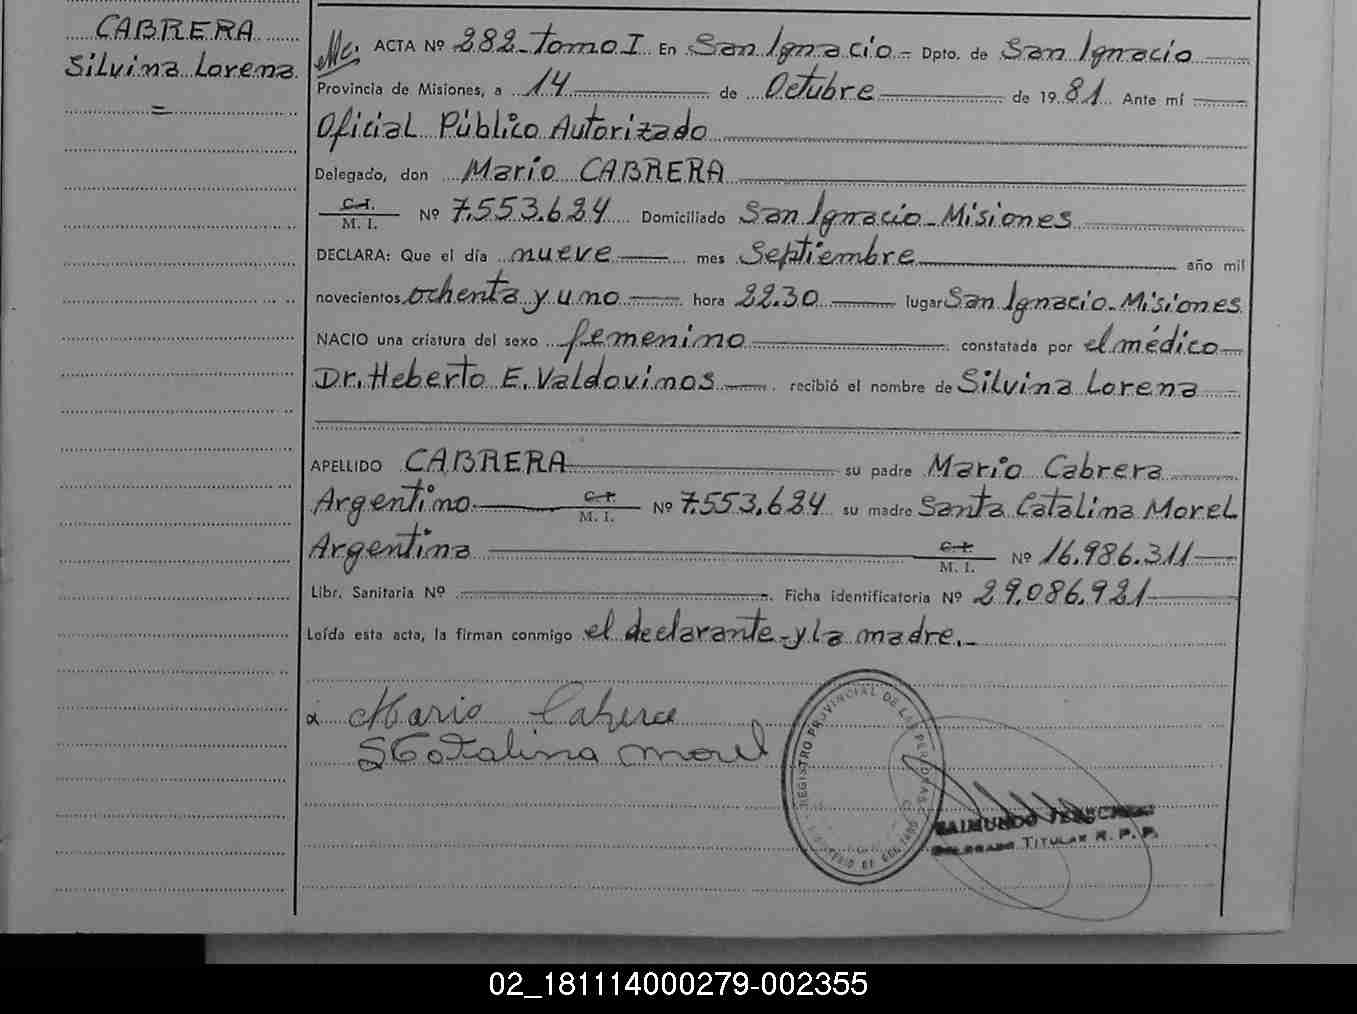 CABRERA
Silvina Lorena
=
ACTA Nº 282 - Tomo I En San Ignacio - Dpto. de San Ignacio
Provincia de Misiones, a 14 de Octubre de 1981 Ante mí
Oficial Público Autorizado
Delegado, don Mario CABRERA
C.I.
M. I. Nº 7.553.624 Domiciliado San Ignacio - Misiones
DECLARA: Que el día nueve mes Septiembre año mil
novecientos ochenta y uno hora 22.30 lugar San Ignacio - Misiones
NACIO una criatura del sexo femenino constatada por el médico
Dr. Heberto E. Valdovinos recibió el nombre de Silvina Lorena
APELLIDO CABRERA su padre Mario Cabrera
Argentino C.I. M. I. Nº 7.553.624 su madre Santa Catalina Morel
Argentina C.I. M. I. Nº 16.986.311
Libr. Sanitaria Nº Ficha identificatoria Nº 29.086.921
Leída esta acta, la firman conmigo el declarante y la madre.-
Mario Cabrera
S Catalina Morel
REGISTRO PROVINCIAL DE LAS PERSONAS
RAIMUNDO
DELEGADO TITULAR R. P. P.
02_181114000279-002355